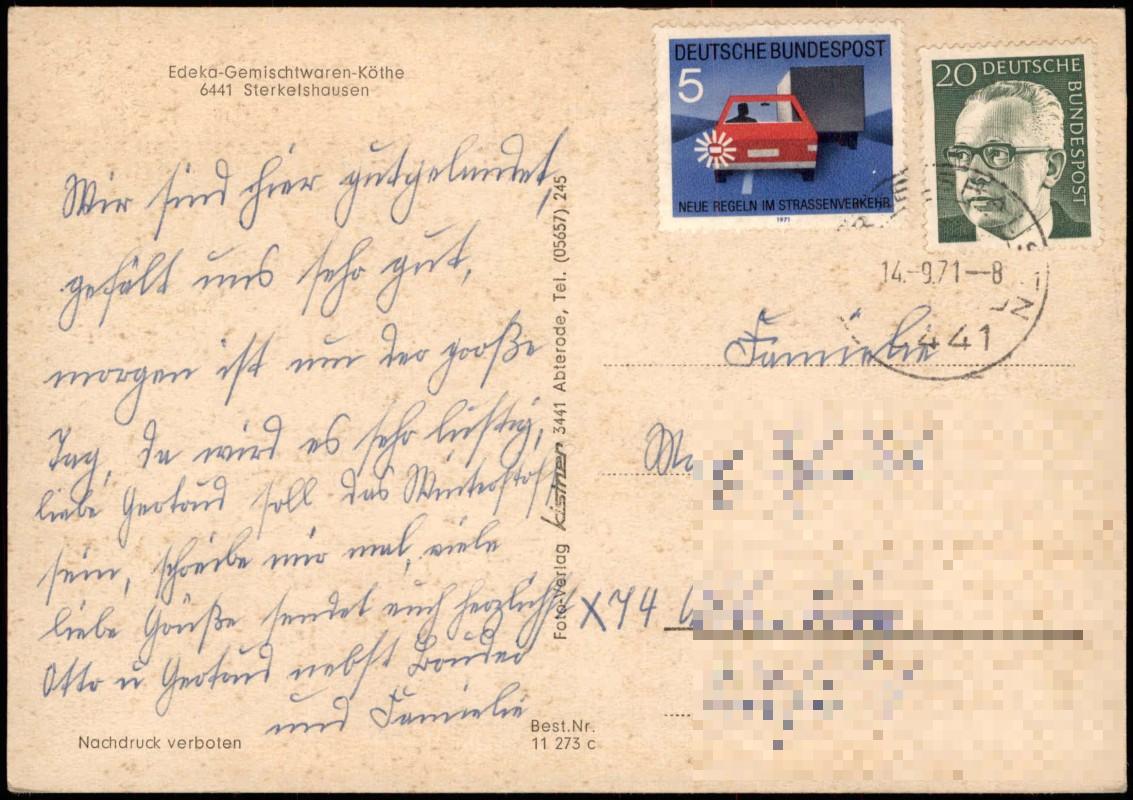 Edeka-Gemischtwaren-Köthe
6441 Sterkelshausen
Wir sind hier gutgelandet,
gefält uns sehr gut,
morgen ist nun der große
Tag, da wird es sehr lustig,
liebe Gertrud soll das
sein, schreibe mir mal, viele
liebe Grüße sendet euch herzlichst
Otto u Gertrud nebst Bruder
und Familie
Nachdruck verboten
Best.Nr.
11 273 c
Foto-Verlag kistner 3441 Abterode, Tel. (05657) 245
DEUTSCHE BUNDESPOST
5
NEUE REGELN IM STRASSENVERKEHR
1971
20 DEUTSCHE
BUNDESPOST
14.-9.71--8
441
Familie
X74